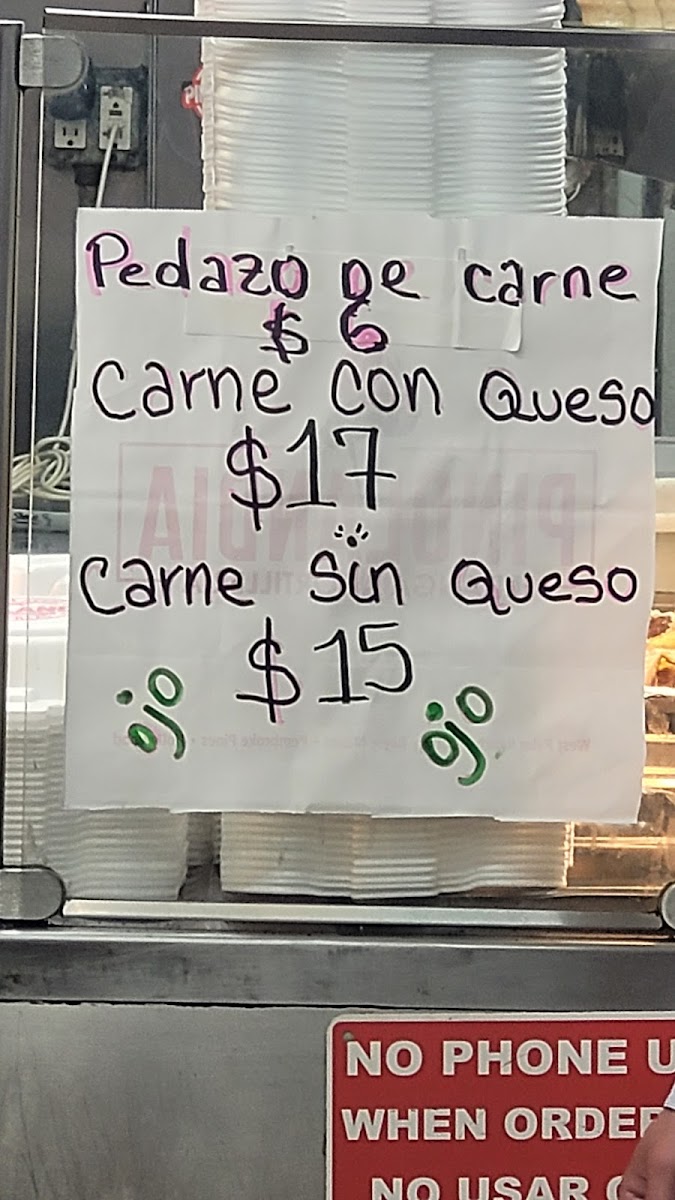 Pedazo De carne
$ 6
Carne Con Queso
$17
Carne Sin Queso
$15
ojo ojo
NO PHONE
WHEN
NO USAR